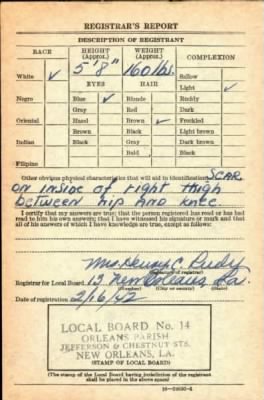 REGISTRAR'S REPORT
DESCRIPTION OF REGISTRANT
RACE HEIGHT (Approx.) WEIGHT (Approx.) COMPLEXION
5' 8" 160 lbs.
White ✓ Sallow
EYES HAIR Light ✓
Negro Blue ✓ Blonde Ruddy
Gray Red Dark
Oriental Hazel Brown ✓ Freckled
Brown Black Light brown
Indian Black Gray Dark brown
Bald Black
Filipino
Other obvious physical characteristics that will aid in identification SCAR
on inside of right thigh
between hip and knee
I certify that my answers are true; that the person registered has read or has had
read to him his own answers; that I have witnessed his signature or mark and that
all of his answers of which I have knowledge are true, except as follows:
Mrs. Henry C.
(Signature of registrar)
Registrar for Local Board 13 New Orleans La.
(Number) (City or county) (State)
Date of registration 2/16/42
LOCAL BOARD No. 14
ORLEANS PARISH
JEFFERSON & CHESTNUT STS.
NEW ORLEANS, LA.
(STAMP OF LOCAL BOARD)
(The stamp of the Local Board having jurisdiction of the registrant
shall be placed in the above space.)